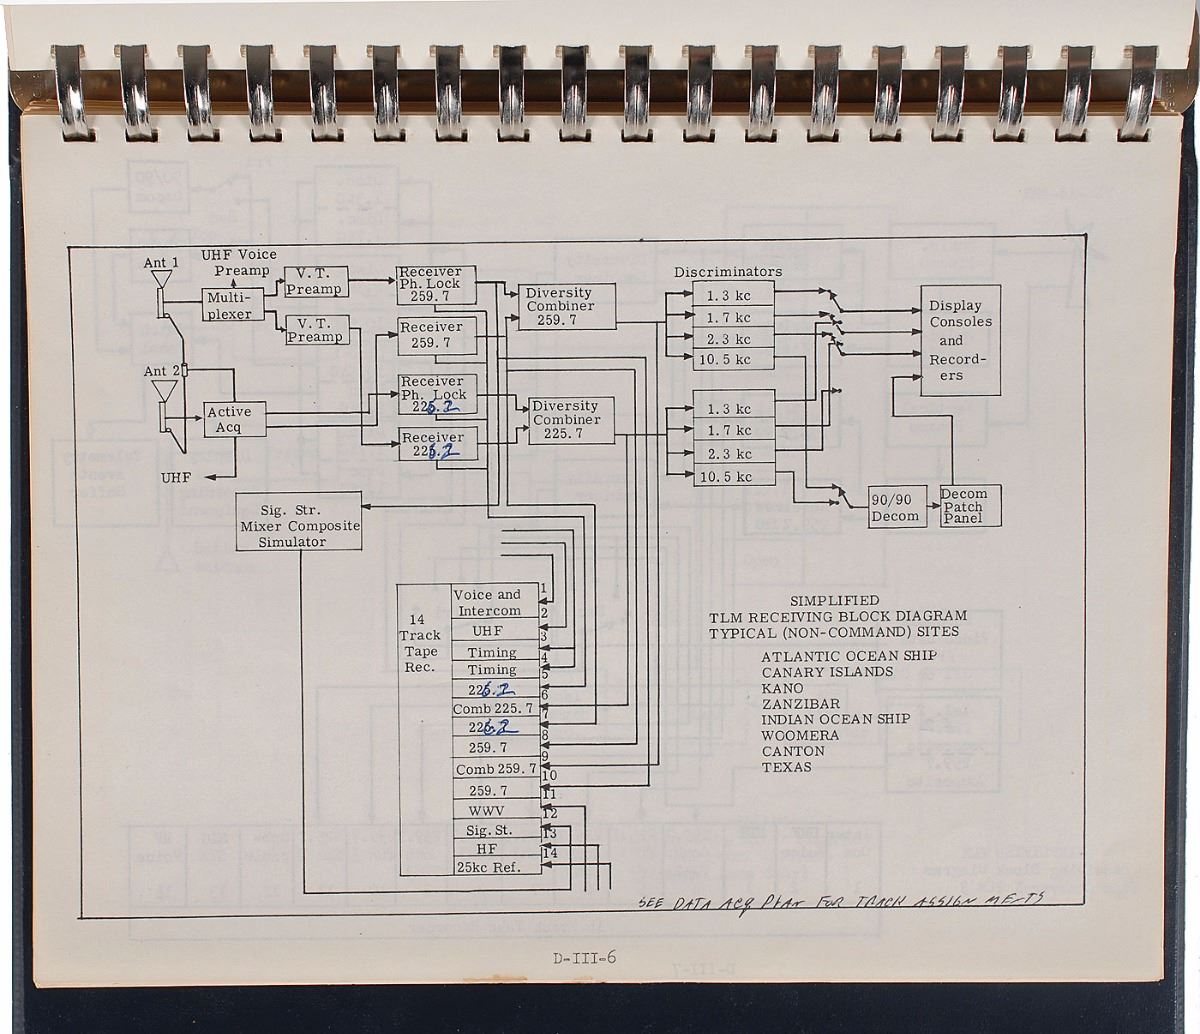 Ant 1
UHF Voice
Preamp
Multi-
plexer
V. T.
Preamp
V. T.
Preamp
Ant 2
Active
Acq
UHF
Receiver
Ph. Lock
259.7
Receiver
259.7
Receiver
Ph. Lock
226.2
Receiver
226.2
Diversity
Combiner
259.7
Diversity
Combiner
225.7
Discriminators
1.3 kc
1.7 kc
2.3 kc
10.5 kc
1.3 kc
1.7 kc
2.3 kc
10.5 kc
Display
Consoles
and
Record-
ers
90/90
Decom
Decom
Patch
Panel
Sig. Str.
Mixer Composite
Simulator
14
Track
Tape
Rec.
Voice and
Intercom
1
UHF
2
Timing
3
Timing
4
226.2
5
Comb 225.7
6
226.2
7
259.7
8
Comb 259.7
9
259.7
10
WWV
11
Sig. St.
12
HF
13
25kc Ref.
14
SIMPLIFIED
TLM RECEIVING BLOCK DIAGRAM
TYPICAL (NON-COMMAND) SITES
ATLANTIC OCEAN SHIP
CANARY ISLANDS
KANO
ZANZIBAR
INDIAN OCEAN SHIP
WOOMERA
CANTON
TEXAS
SEE DATA ACQ PLAN FOR TRACK ASSIGNMENTS
D-III-6